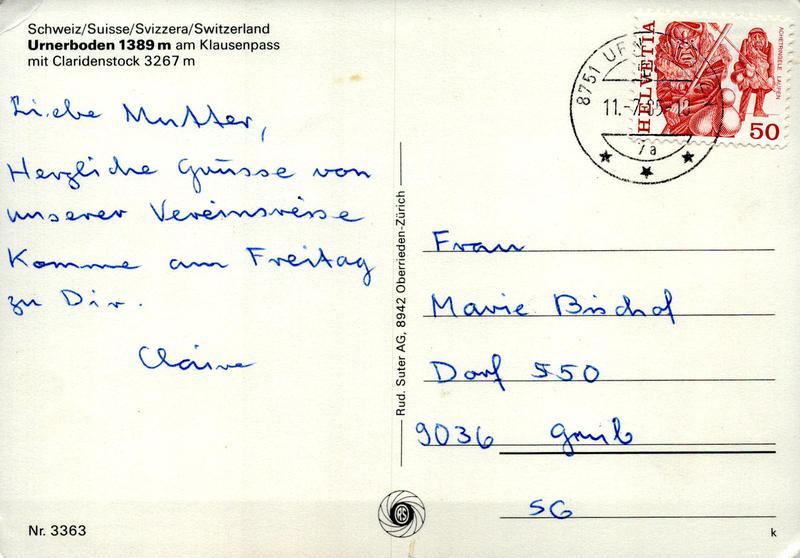 Schweiz/Suisse/Svizzera/Switzerland
Urnerboden 1389 m am Klausenpass
mit Claridenstock 3267 m
Liebe Mutter,
Herzliche Grüsse von
unserer Vereinsreise
Komme am Freitag
zu Dir.
Claire
Nr. 3363
Rud. Suter AG, 8942 Oberrieden-Zürich
RS
HELVETIA
ACHETRINGELE LAUPEN
50
8751 UR
11.-7.85-18
7 a
Frau
Marie Bischof
Dorf 550
9036 Grub
SG
k